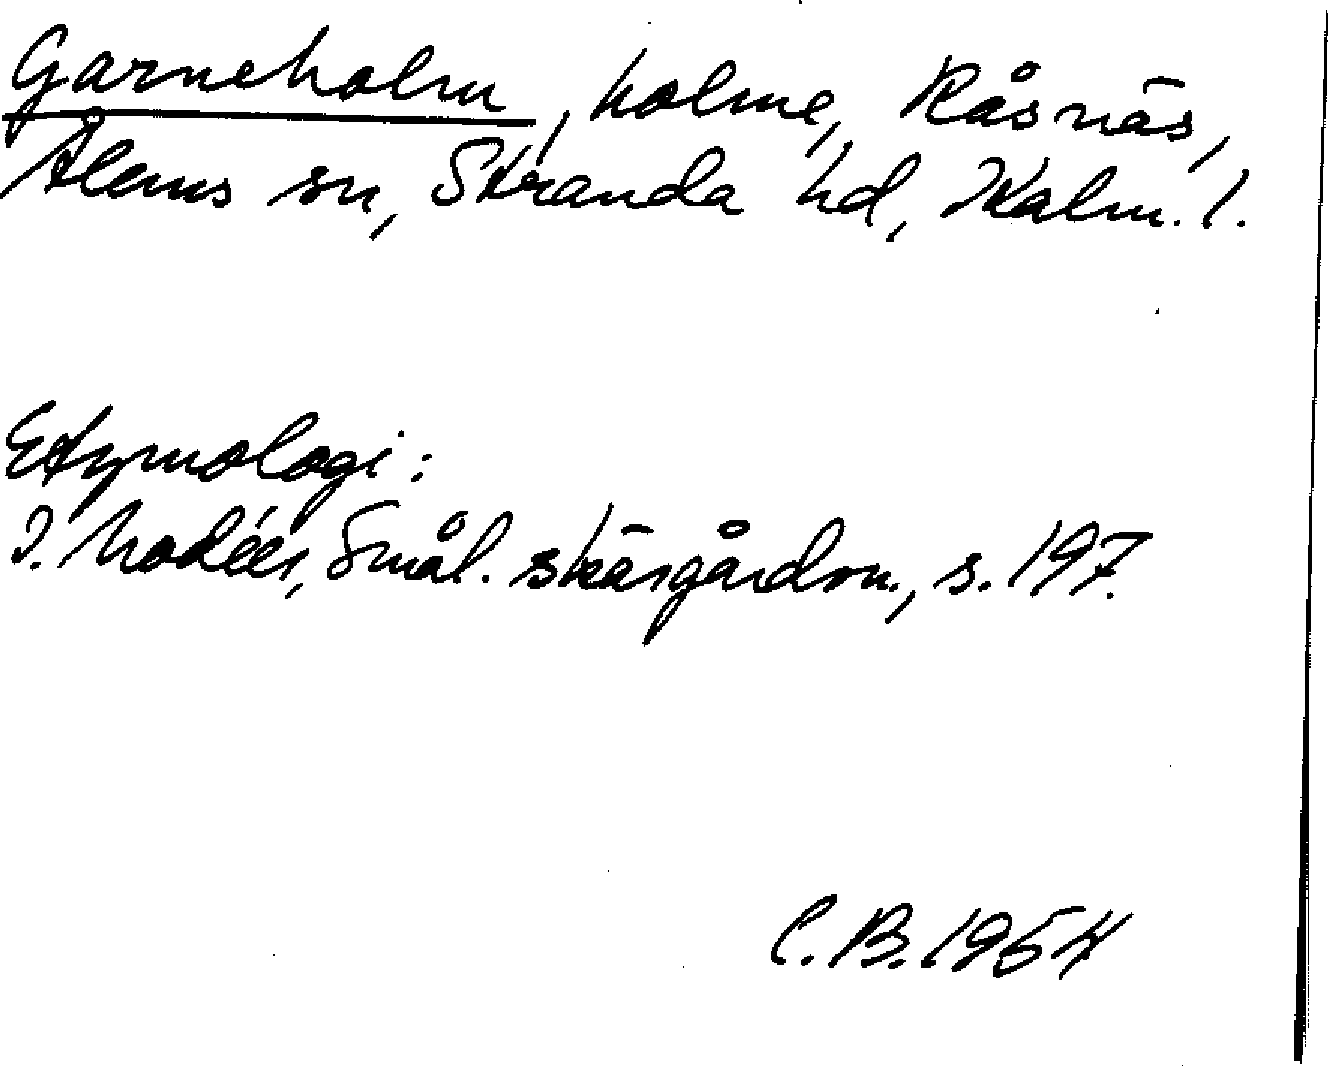 Garneholm, holme, Råsnäs,
Ålems sn, Stranda hd, Kalm. l.
Etymologi:
I. Modéer, Smål. skärgårdsn., s. 197.
C.B. 1954